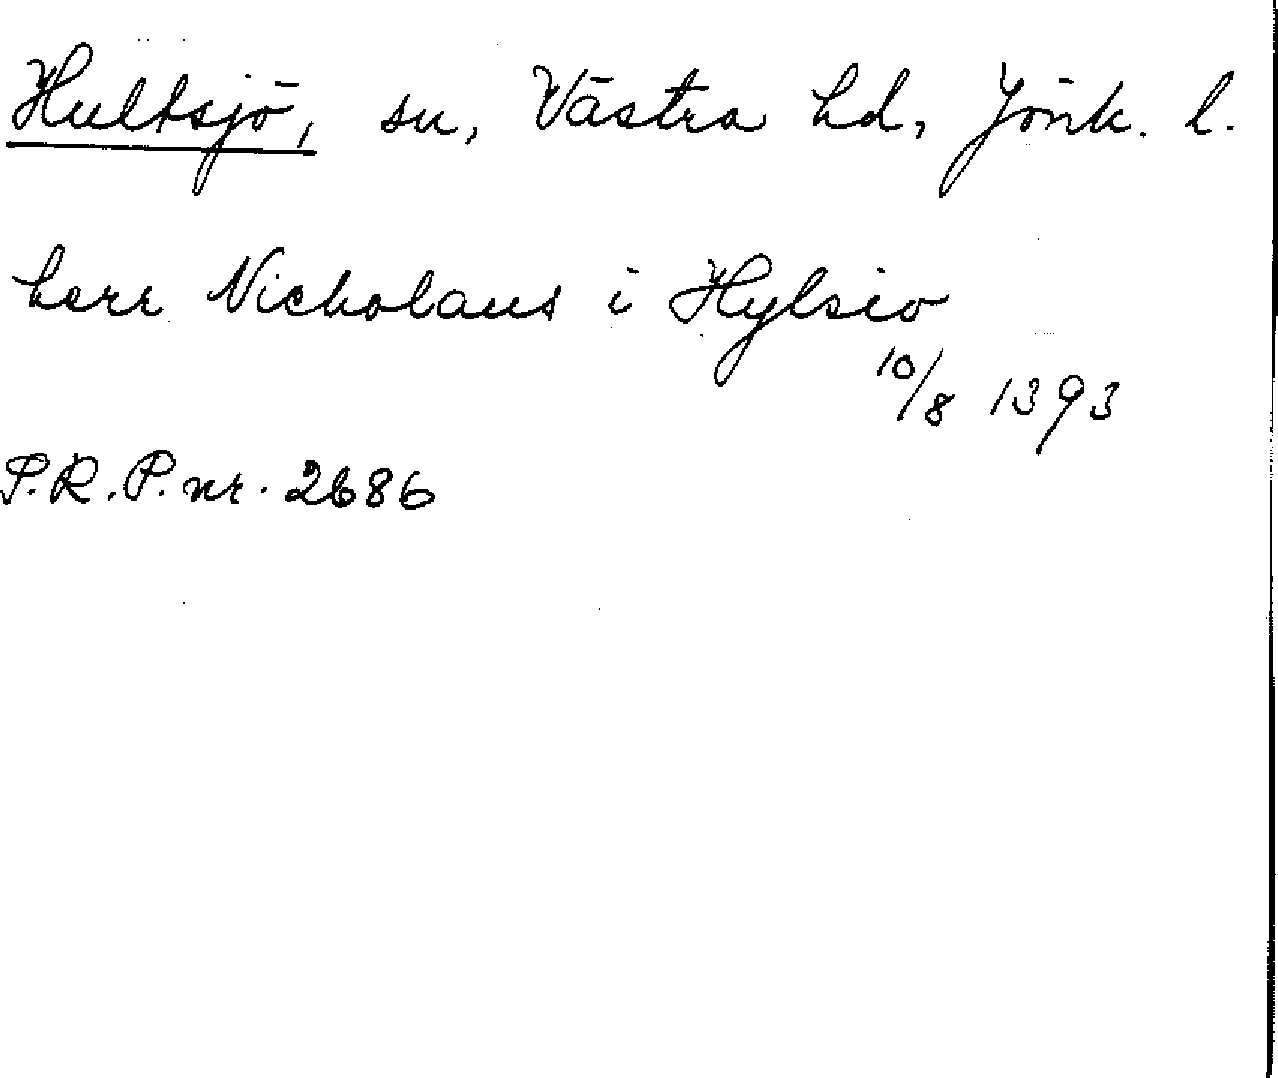 Hultsjö, sn, Västra hd, Jönk. l.
herr Nicholaus i Hylsio
10/8 1393
P.R.P. nr. 2686